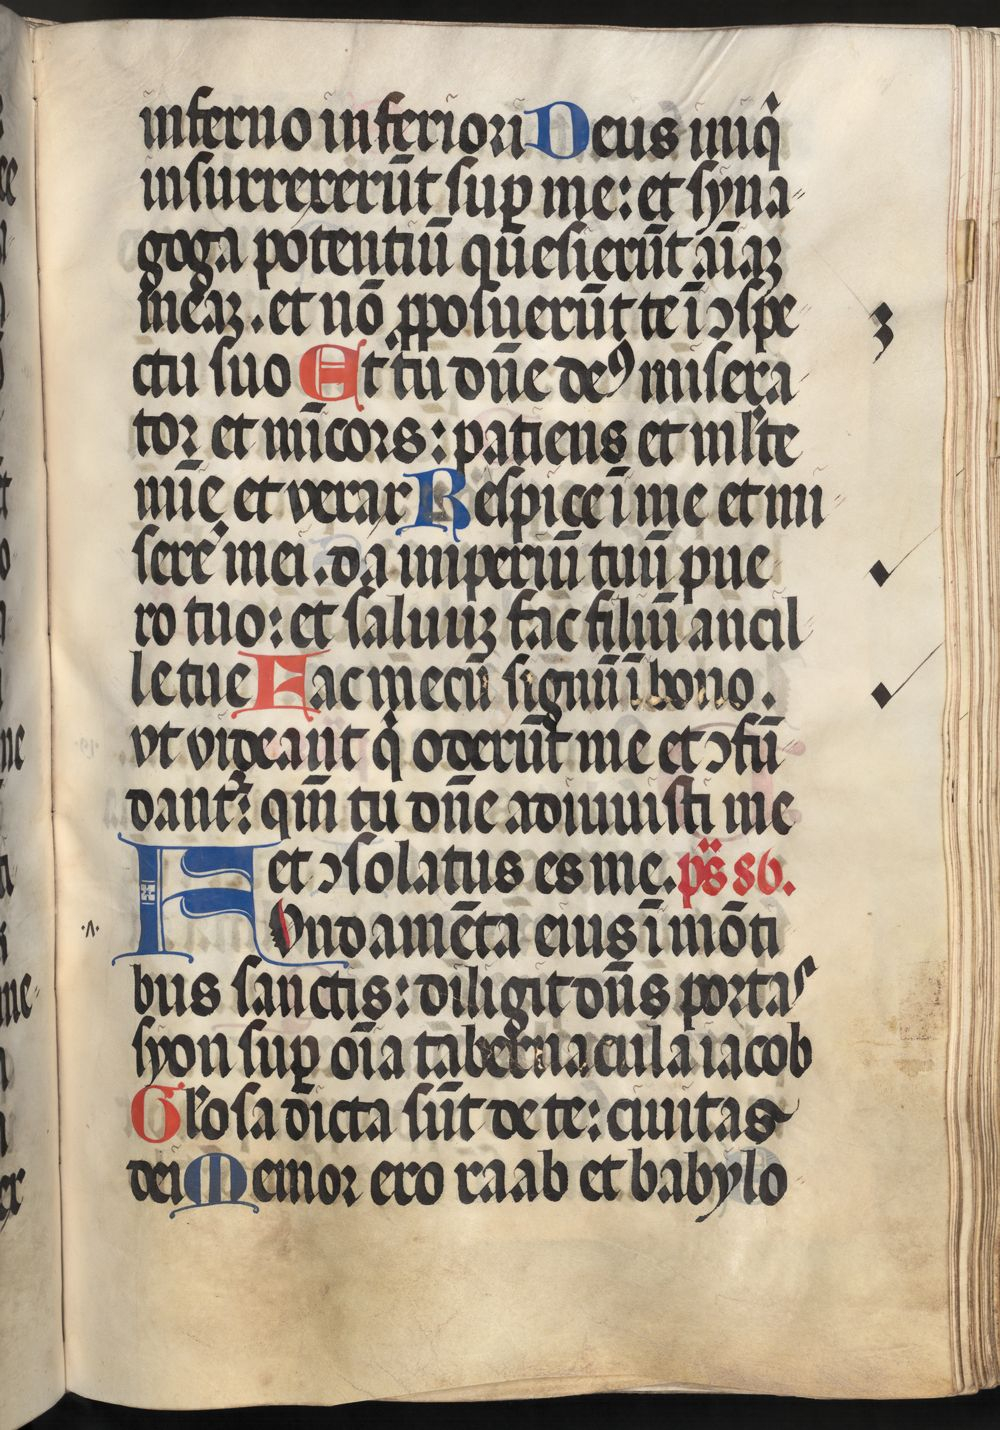 inferno inferiori Deus iniq̇
insurrexerūt sup̱ me: et syna⸗
goga potentiū quesierūt aīaꝫ
meaꝫ. et nō ꝓposuerūt te ī ↄspe
ctu suo Et tu dn̄e deꝰ misera
tor et mīcors: patiens et ml̄te
mīe et verax Respice ī me et mi
sere mei. da imperiū tuū pue
ro tuo: et saluuꝫ fac filiū ancil
le tue Fac mecū signū ī bono.
vt videant q̇ oderūt me et ↄfū
dant᷑: qm̄ tu dn̄e adiuuisti me
et ↄsolatus es me. p̄s 86.
Fundamēta eius ī mōti
bus sanctis: diligit dn̄s portas
syon sup̱ oīa tabernacula iacob
Glosa dicta sūt de te: ciuitas
dei Memor ero raab et babylo